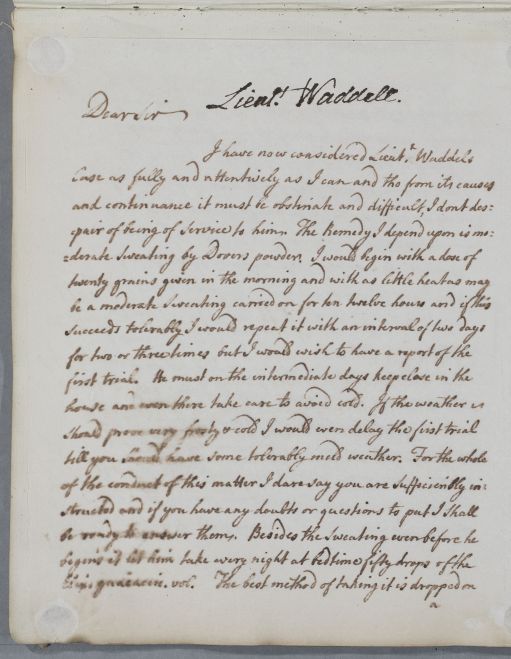 Lieut.s Waddell.
Dear Sir
I have now considered Lieut.t Waddels
Case as fully and attentively as I can and tho from its causes
and continuance it must be obstinate and difficult, I dont des=
=pair of being of Service to him. The Remedy I depend upon is mo=
=derate Sweating by Dovers powder. I would begin with a dose of
twenty grains given in the morning and with as little heat as may
be a moderate Sweating carried on for ten twelve hours and if this
succeeds tolerably I would repeat it with an interval of two days
for two or three times but I would wish to have a report of the
first trial. He must on the intermediate days keep close in the
house and even there take care to avoid cold. If the weather
should prove very frosty & cold I would even delay the first trial
till you should have some tolerably mild weather. For the whole
of the conduct of this matter I dare say you are sufficiently in=
structed and if you have any doubts or questions to put I shall
be ready to answer them. Besides the Sweating even before he
begins it let him take every night at bedtime fifty drops of the
guaiacin. vol. The best method of taking it is dropped on
a